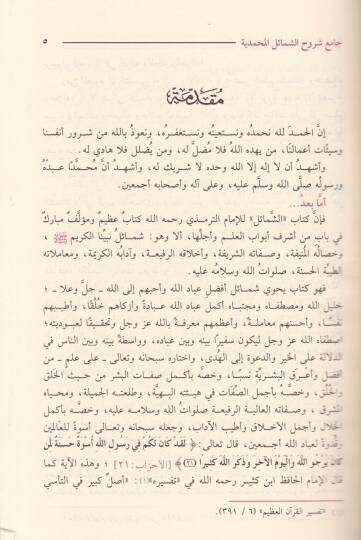 جامع شروح الشمائل المحمدية
٥
مقدمة
إنَّ الحمدَ لله نحمدُه ونستعينُه ونستغفرُه، ونعوذُ بالله من شرور أنفسنا
وسيئات أعمالنا، من يهده اللهُ فلا مُضلَّ له، ومن يُضلل فلا هادي له.
وأشهدُ أن لا إله إلا الله وحده لا شريك له، وأشهدُ أنَّ محمَّدًا عبدُه
ورسولُه صلَّى الله وسلَّم عليه، وعلى آله وأصحابه أجمعين.
أما بعدُ..
فإنَّ كتابَ «الشَّمائل» للإمام الترمذي رحمه الله كتابٌ عظيمٌ ومؤلَّفٌ مباركٌ
في باب من أشرف أبواب العلم وأجلِّها، ألا وهو: شمائلُ نبيِّنا الكريم ﷺ،
وخصالُه المُنيفة، وصفاتُه الشريفة، وأخلاقُه الرفيعة، وآدابُه الكريمة، ومعاملاتُه
الطيبة الحسنة، صلواتُ الله وسلامُه عليه.
فهو كتاب يحوي شمائل أفضل عباد الله وأحبهم إلى الله ـ جلَّ وعلا ـ؛
خليل الله ومصطفاه ومجتباه أكمل عباد الله عبادةً وأزكاهم خُلُقًا، وأطيبهم
نفسًا، وأحسنهم معاملةً، وأعظمهم معرفةً بالله عز وجل وتحقيقًا لعبوديته؛
اصطفاه الله عز وجل ليكون سفيرًا بينه وبين عباده، وواسطةً بينه وبين الناس في
الدلالة على الخير والدعوة إلى الهُدى، واختاره سبحانه وتعالى ـ على علمٍ ـ من
أفضل وأعْرق البشريَّة نسبًا، وخصَّه بأكمل صفات البشر من حيث الخَلق
والخُلُق، وخصَّه بأجمل الصِّفات في هيئته البهيَّة، وطلعته الجميلة، ومحياه
المشرق، وصفاته العالية الرفيعة صلوات الله وسلامه عليه، وخصَّه بأكمل
الخلال وأجمل الأخلاق وأطيب الآداب، وجعله سبحانه وتعالى أسوةً للعالمين
وقدوةً لعباد الله أجمعين، قال تعالى: ﴿لَّقَدْ كَانَ لَكُمْ فِي رَسُولِ اللَّهِ أُسْوَةٌ حَسَنَةٌ لِّمَن
كَانَ يَرْجُو اللَّهَ وَالْيَوْمَ الْآخِرَ وَذَكَرَ اللَّهَ كَثِيرًا (٢١)﴾ [الأحزاب: ٢١]؛ وهذه الآية كما
قال الإمام الحافظ ابن كثير رحمه الله في «تفسيره»(١): «أصلٌ كبير في التأسي
(١) «تفسير القرآن العظيم» (٦ / ٣٩١).